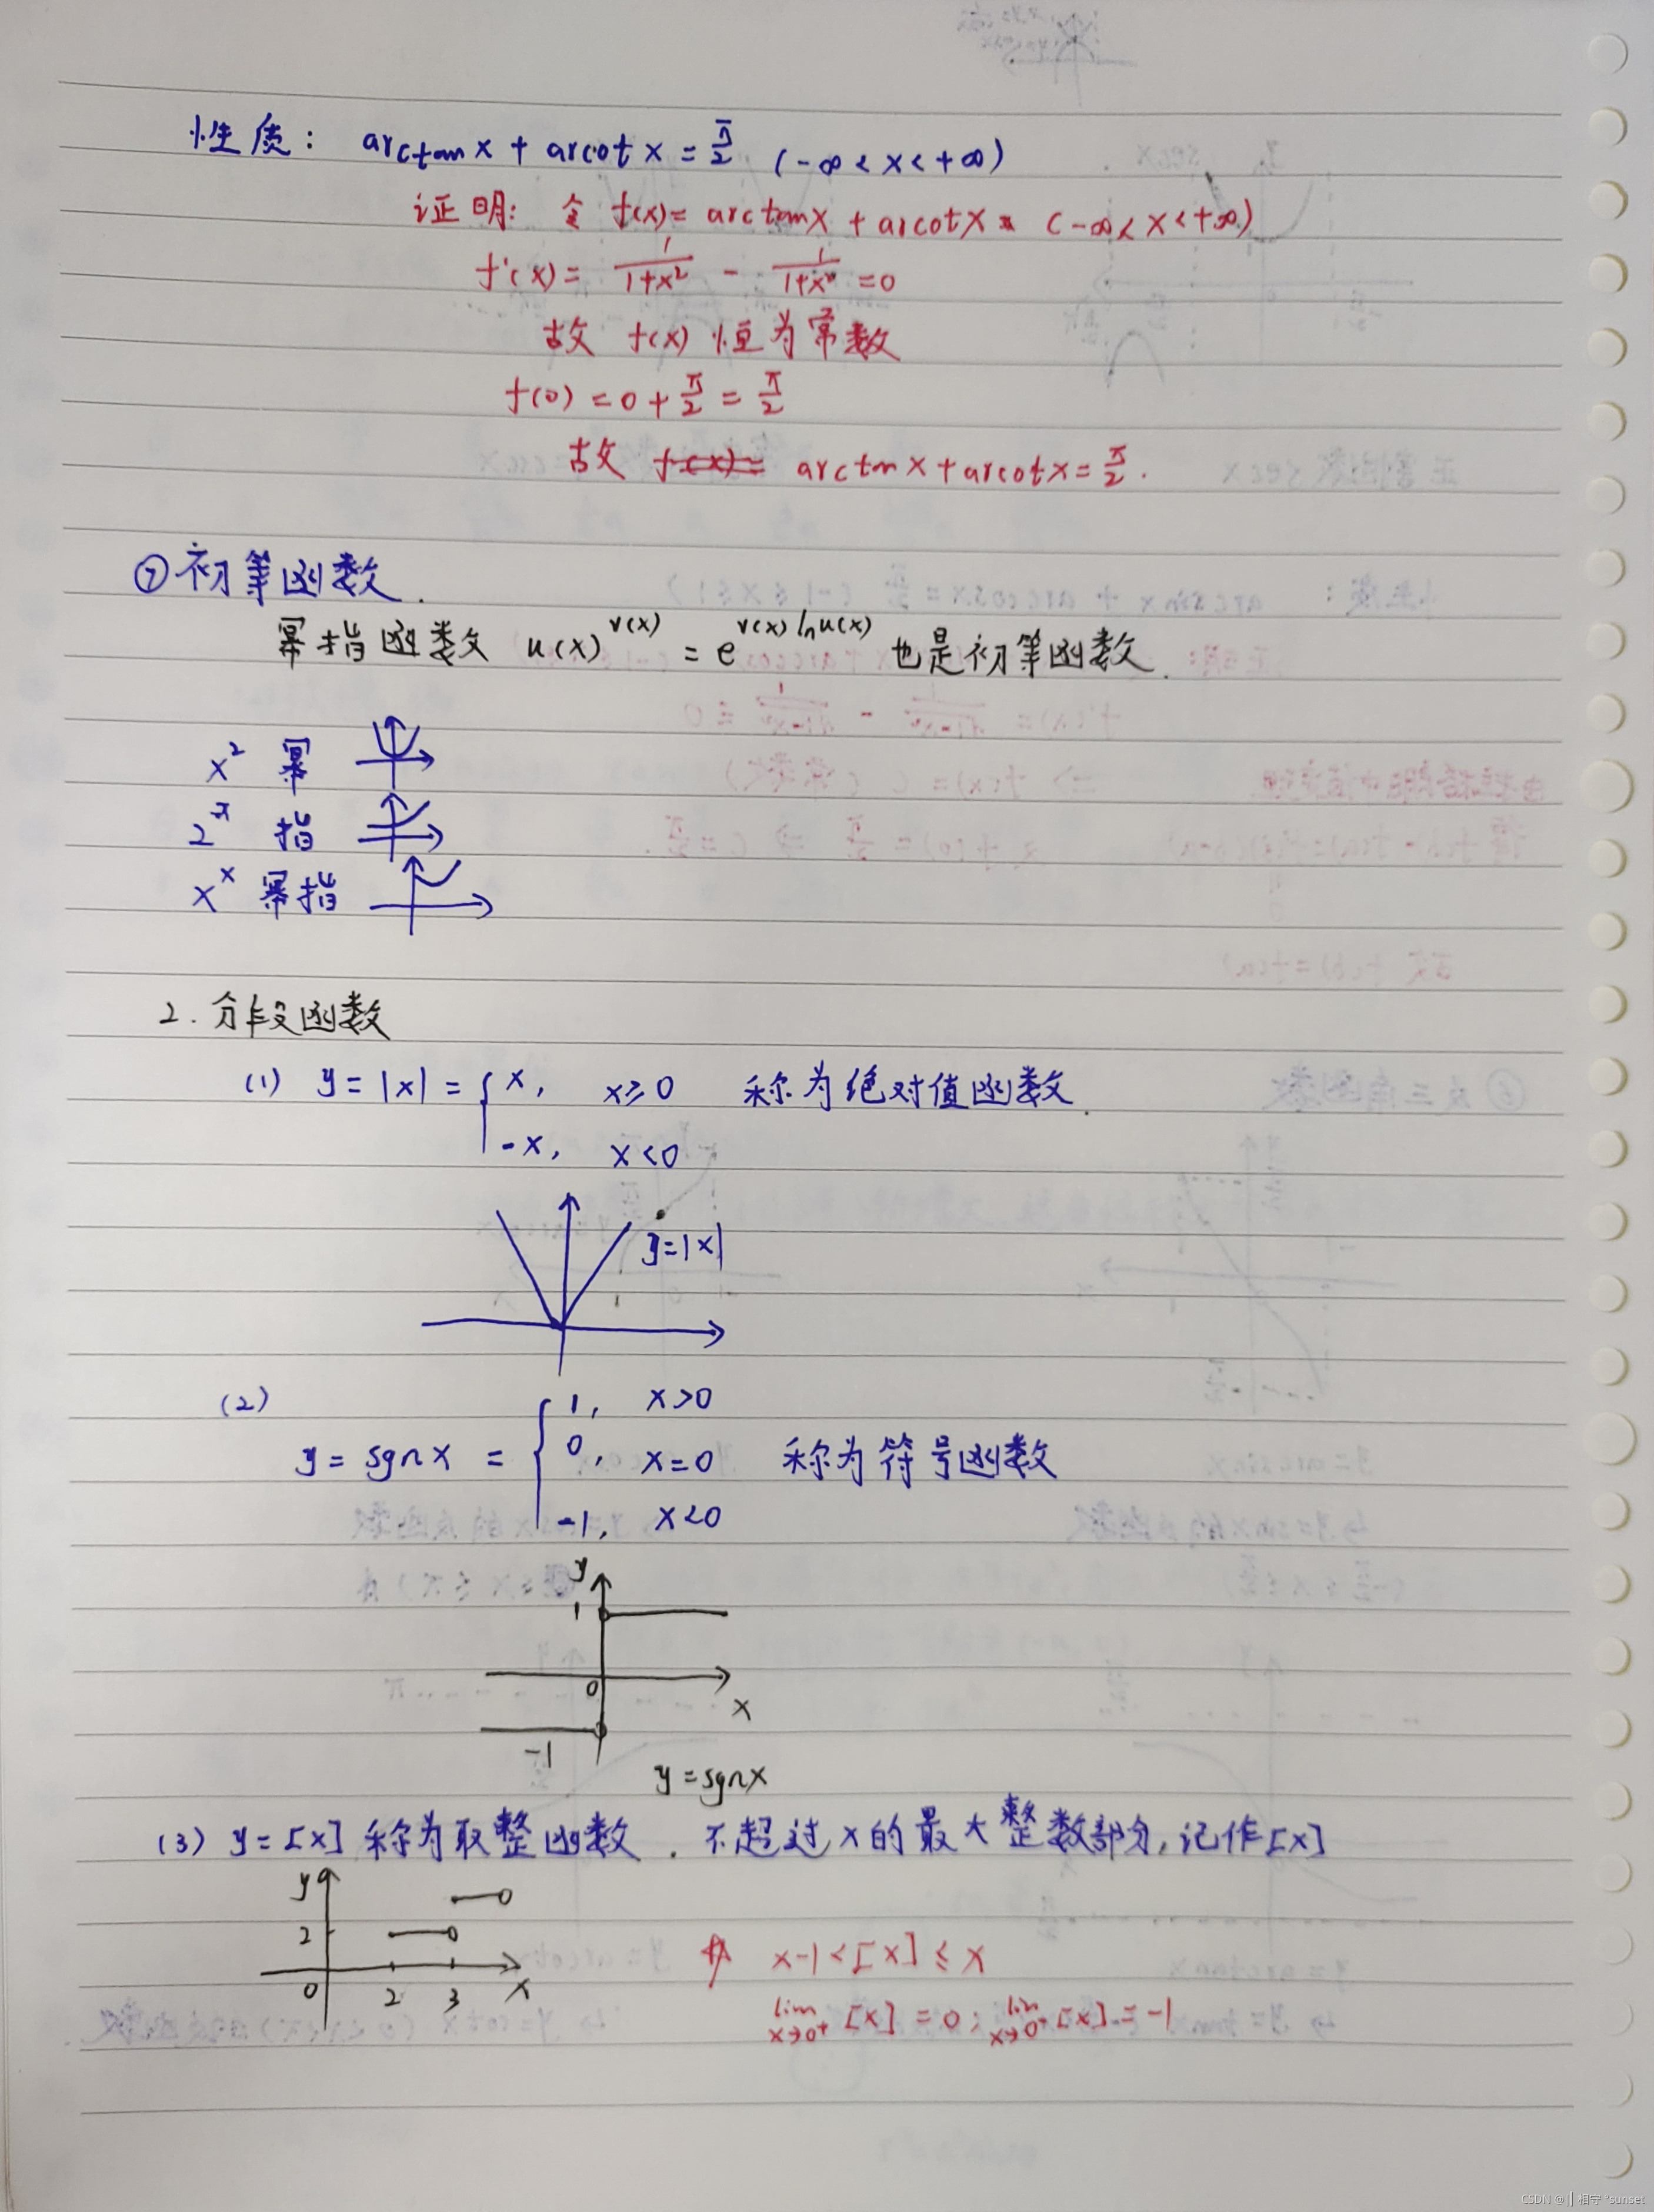 性质: arctanx + arcotx = π/2 (-∞<x<+∞)
证明: 令 f(x)= arctanx + arcotx (-∞<x<+∞)
f'(x)= 1/(1+x²) - 1/(1+x²) =0
故 f(x) 恒为常数
f(0) = 0+π/2 = π/2
故 f(x)= arctanx+arcotx=π/2.
⑦初等函数.
幂指函数 u(x)^v(x) = e^v(x)lnu(x) 也是初等函数.
x² 幂
2^x 指
x^x 幂指
2. 分段函数
(1) y=|x|= { x, x≥0 称为绝对值函数.
-x, x<0
y=|x|
(2)
1, x>0
y= sgnx = { 0, x=0 称为符号函数
-1, x<0
y
1
0
x
-1
y=sgnx
(3) y=[x] 称为取整函数. 不超过x的最大整数部分,记作[x]
y
2
0 2 3 x
x-1<[x]≤x
lim x→0⁺ [x]=0; lim x→0⁺ [x]=-1
CSDN @|| 相守 °sunset